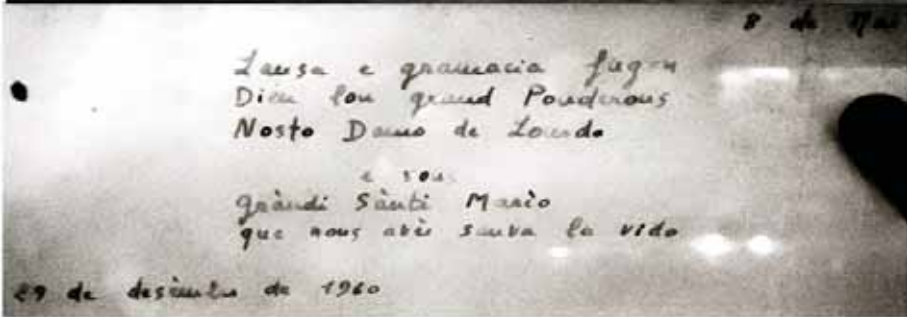 8 de Mai
Lausa e gramacia fugon
Dieu lou grand Pouderous
Nosto Damo de Lourdo
e vous
gràndi Sànti Marìo
que nous avès sauva la vido
29 de desèmbre de 1960